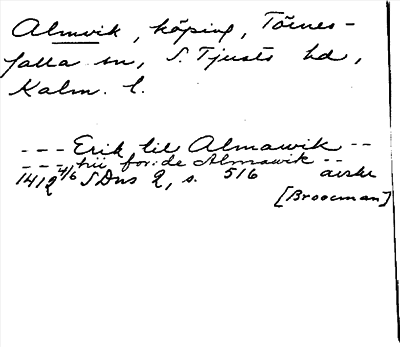 Almvik, köping, Törnes-
falla sn, S. Tjusts hd,
Kalm. l.
--- Erik til Almawik --
--- hii for:de Almawik --
1412 4/6 SDns 2, s. 516 avskr
[Broocman]